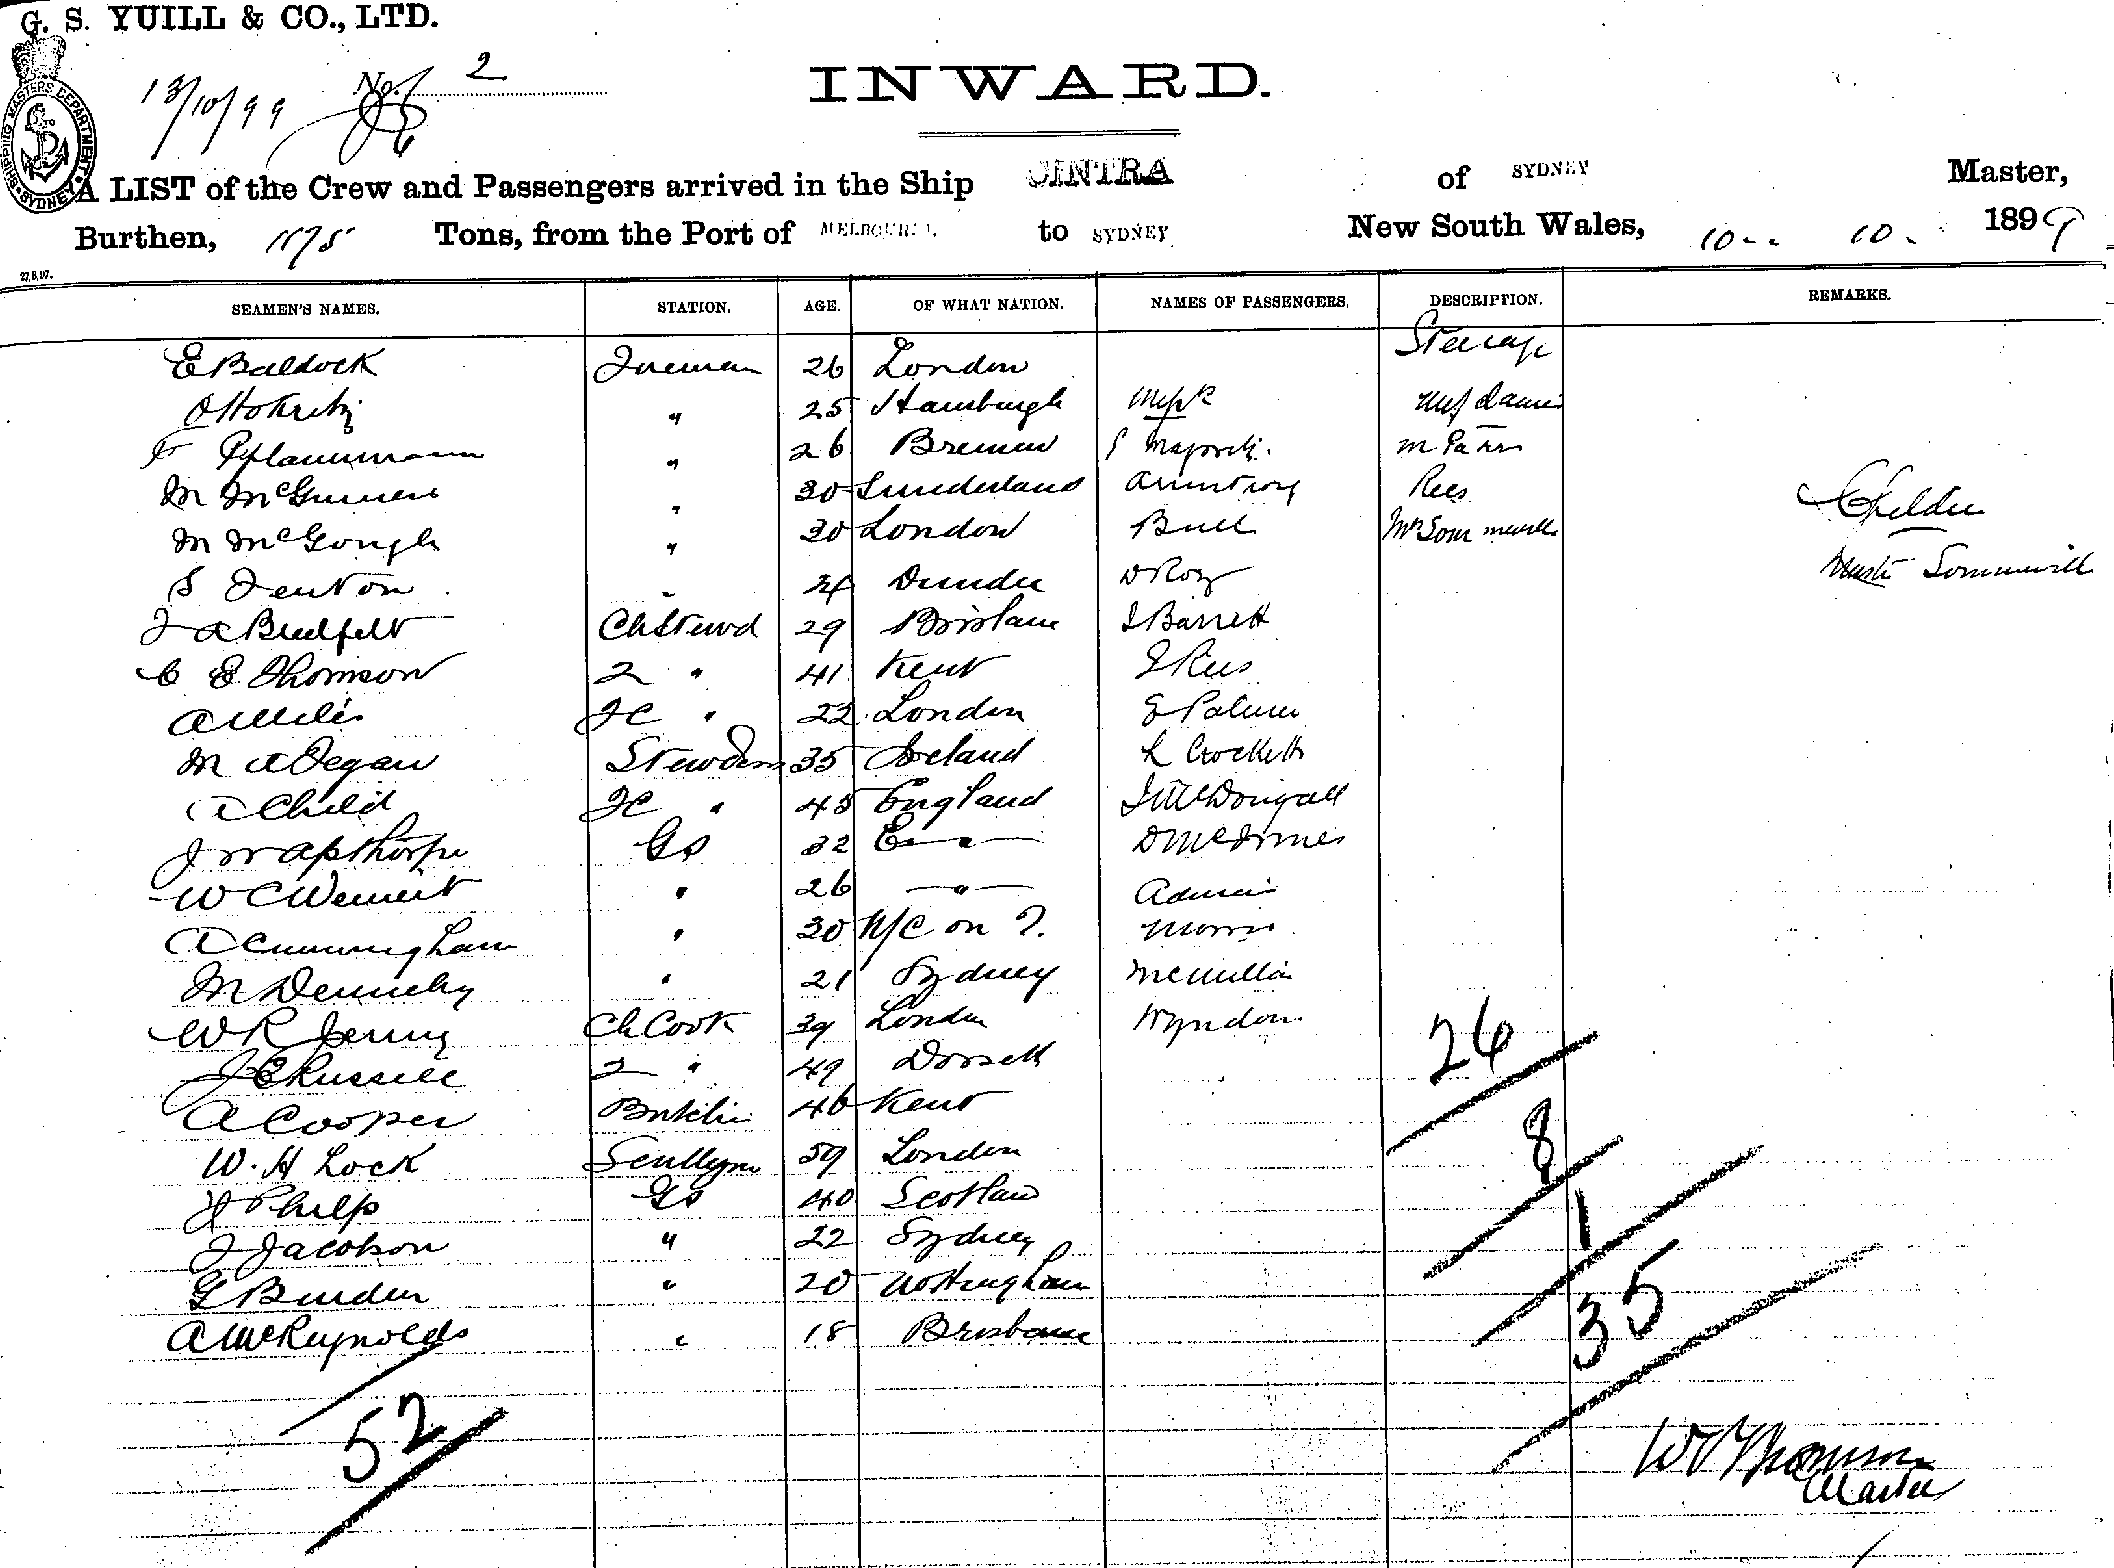 G. S. YUILL & CO., LTD.
13/10/99 No. 2
INWARD.
SHIPPING MASTERS DEPARTMENT SYDNEY
A LIST of the Crew and Passengers arrived in the Ship CINTRA of SYDNEY Master,
Burthen, 1175 Tons, from the Port of MELBOURNE to SYDNEY New South Wales, 10 10 1899
27.8.97.
SEAMEN'S NAMES. STATION. AGE. OF WHAT NATION. NAMES OF PASSENGERS. DESCRIPTION. REMARKS.
Steerage
E Baldock Fireman 26 London
Otto Kritz " 25 Hamburgh
F Pflaummann " 26 Bremen
M McGuiness " 30 Sunderland Armstrong Rees Children
M McGough " 30 London Bull Mr Sommerville
S Fenton " Dundee D Roy Sommerville
J A Bredfelt Ch Stewd 29 Brisbane S Barrett
C E Thomson 2 " 41 Kent E Rees
A Willis FC " 22 London E Palmer
M A Degan Stewdess 35 Ireland L Crockett
A Child FC " 45 England J McDougall
J W Apthorpe GS 32 E " D McInnes
W C Wemert " 26 "
A Cunningham " 30 N/C on T. Morris
M Dennehy " 21 Sydney McMillan
W R Jenny Ch Cook 39 London Wyndon
J E Russell 2 " 49 Dorsett 26
A Cooper 46 Kent
W. H Lock Scullyman 59 London 8
J Philp GS 40 Scotland 1
J Jacobson " 22 Sydney
G Burden " 20 Nottingham
A McReynolds " 18 Brisbane 35
52
W Thomson
Master